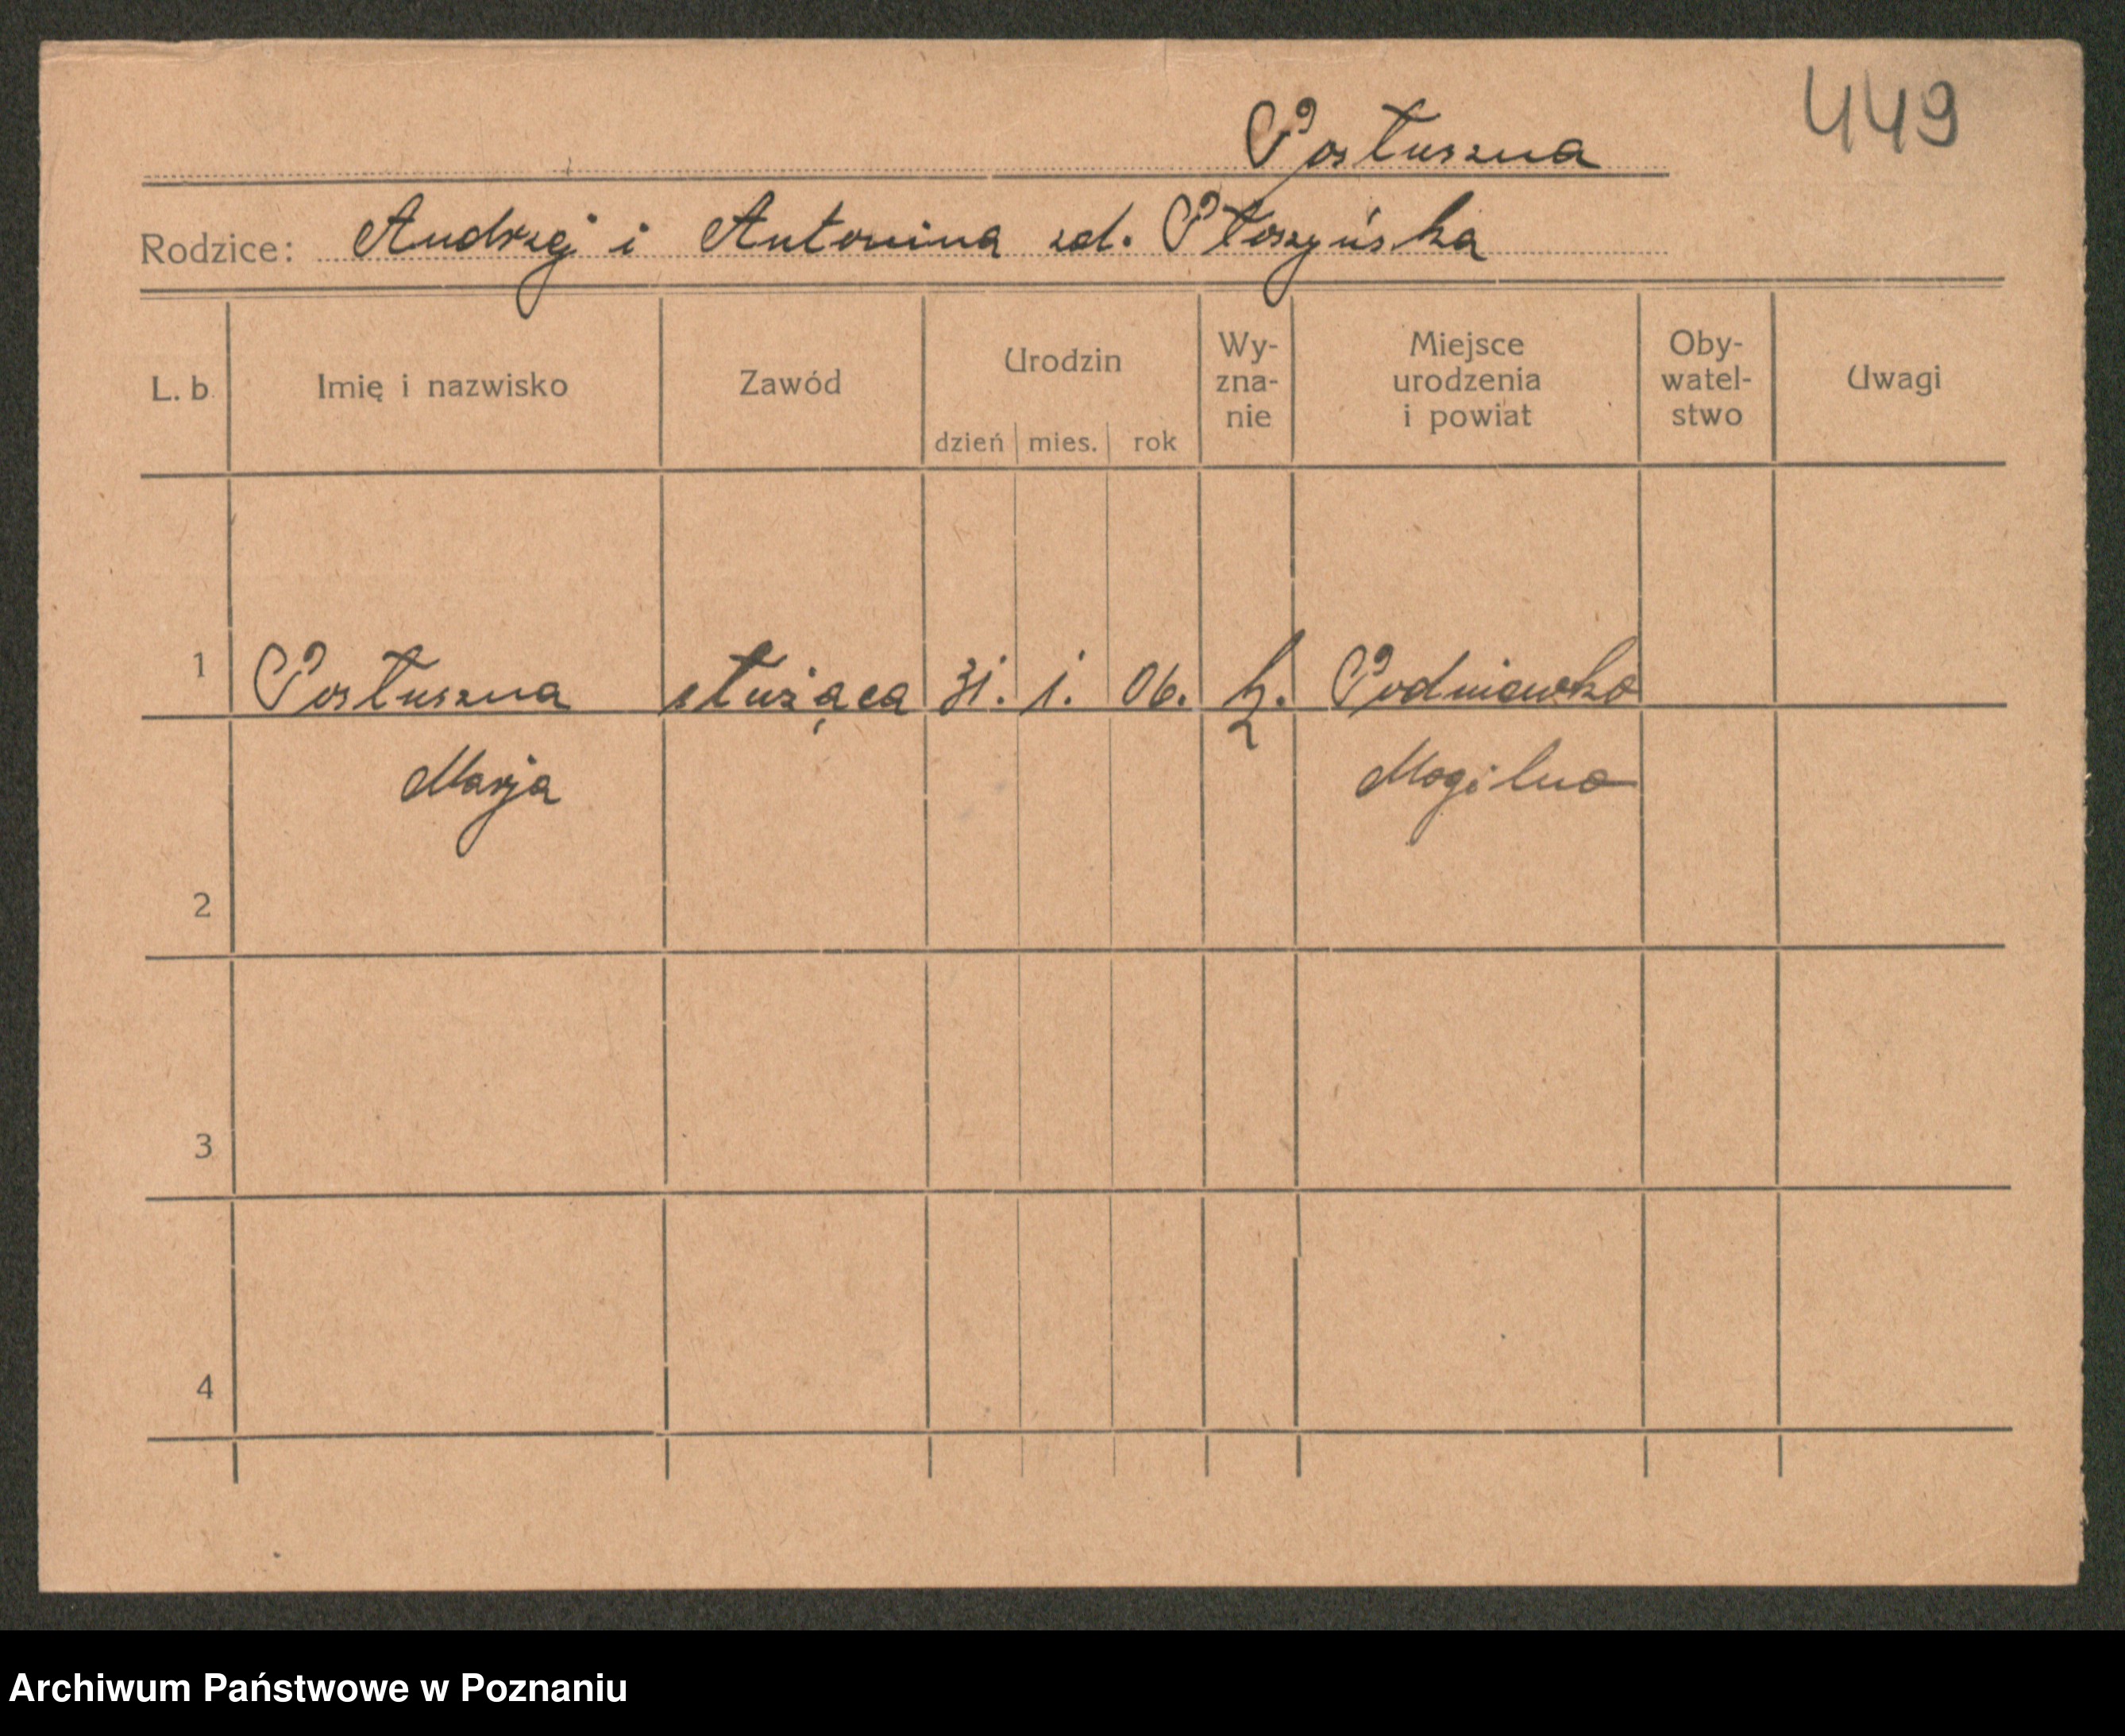 449
Posłuszna
Rodzice: Andrzej i Antonina zd. Płoszyńska
L. b. Imię i nazwisko Zawód Urodzin dzień mies. rok Wy-zna-nie Miejsce urodzenia i powiat Oby-watel-stwo Uwagi
1 Posłuszna służąca 31. 1. 06. k. Podniewko
Marja Mogilno
2
3
4
Archiwum Państwowe w Poznaniu